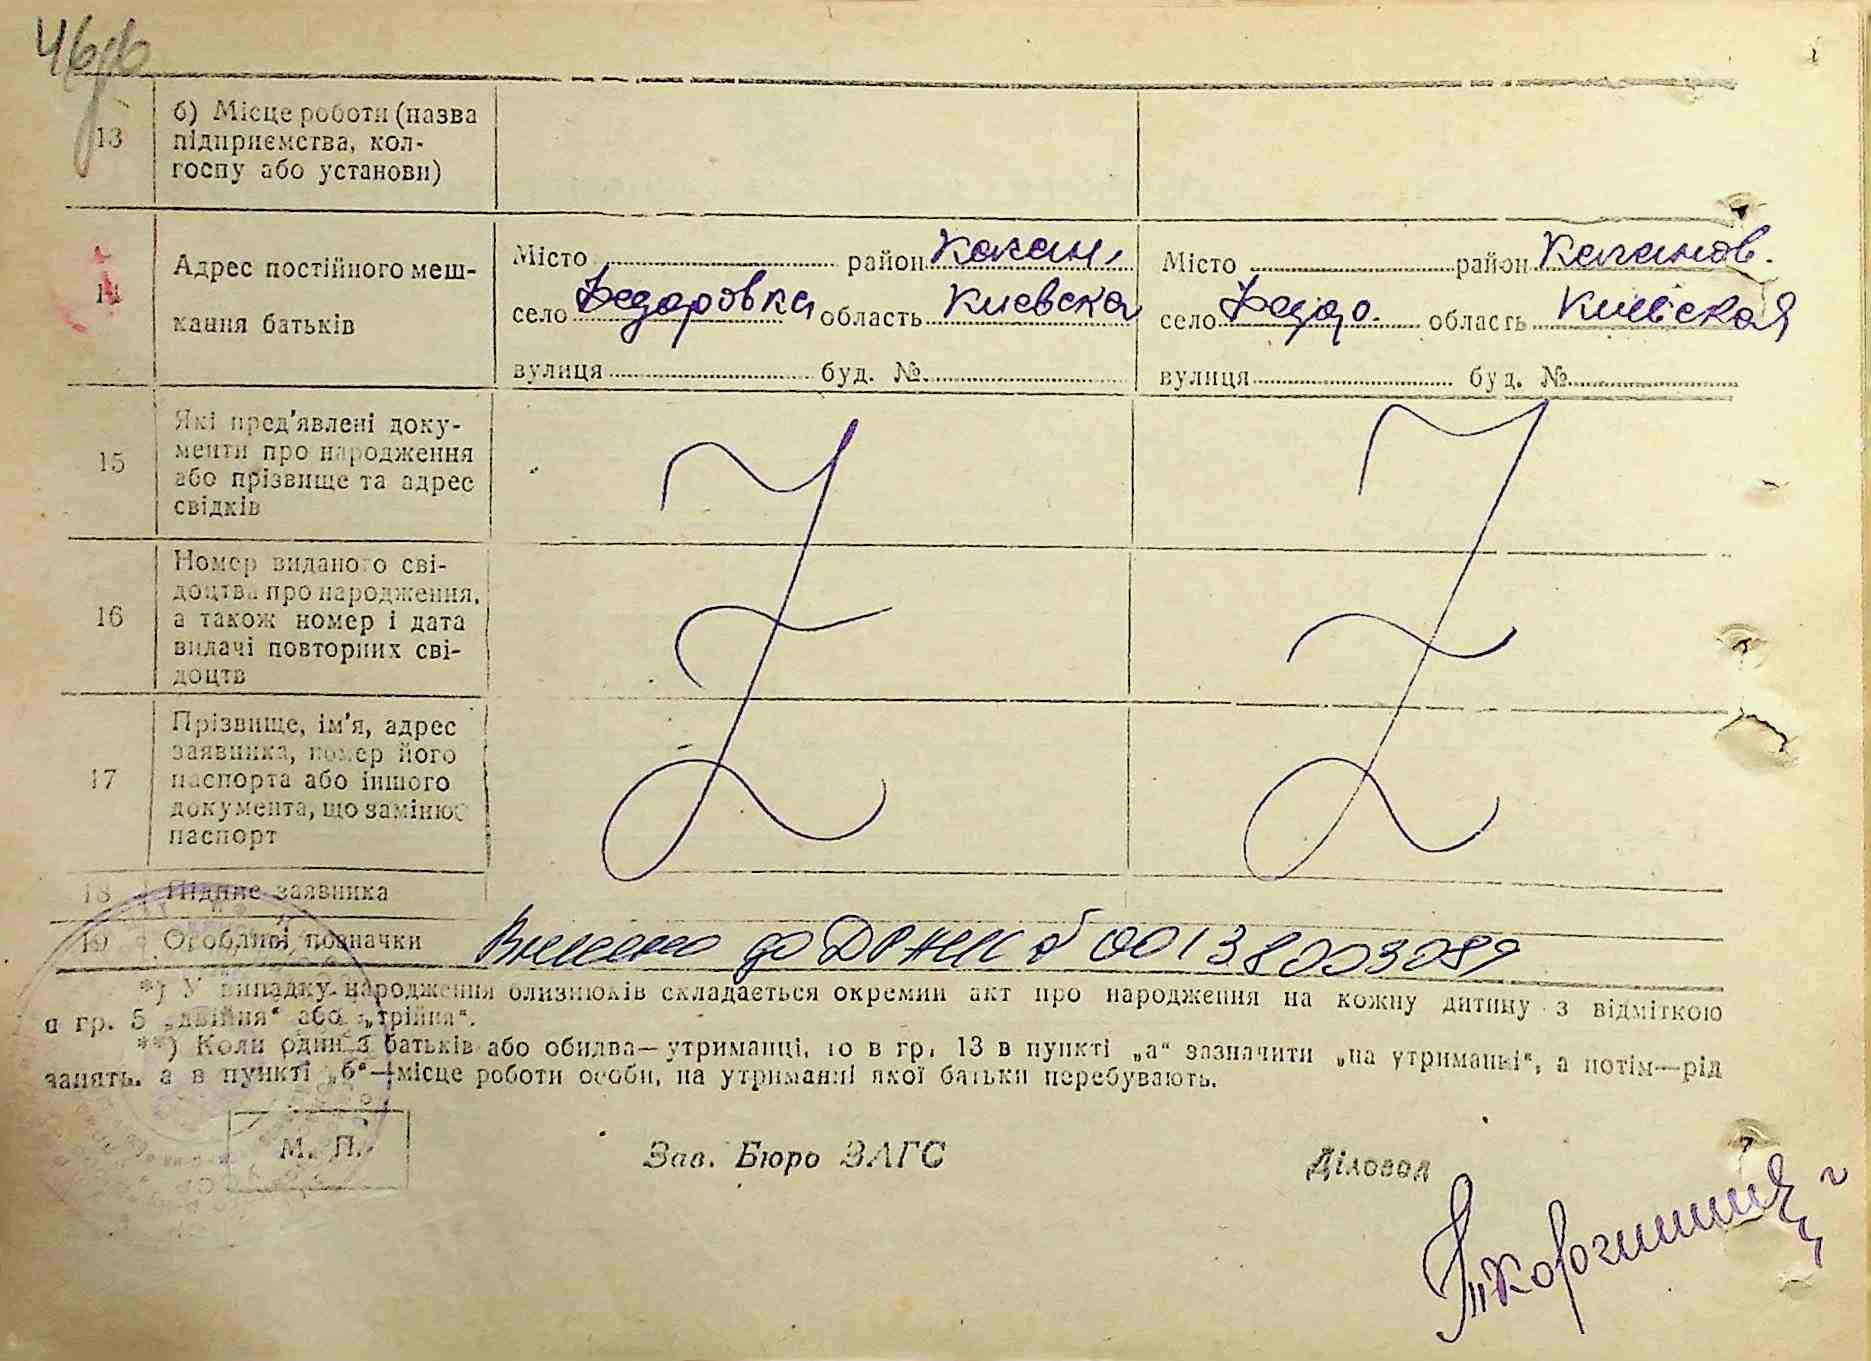 13
б) Місце роботи (назва
підприємства, кол-
госпу або установи)
14
Адрес постійного меш-
кання батьків
Місто район Каган,
село Федоровка область Киевска
вулиця буд. №
Місто район Каганов.
село Федо. область Киевская
вулиця буд. №
15
Які пред'явлені доку-
менти про народження
або прізвище та адрес
свідків
16
Номер виданого сві-
доцтва про народження,
а також номер і дата
видачі повторних сві-
доцтв
17
Прізвище, ім'я, адрес
заявника, номер його
паспорта або іншого
документа, що замінює
паспорт
18 Підпис заявника
19 Особливі позначки Внесено до ДРАЦС 00138003089
*) У випадку народження близнюків складається окремий акт про народження на кожну дитину з відміткою
в гр. 5 „двійня“ або „трійня“.
**) Коли один з батьків або обидва—утриманці, то в гр. 13 в пункті „а“ зазначити „на утриманні“, а потім—рід
занять, а в пункті „б“—місце роботи особи, на утриманні якої батьки перебувають.
М. П.
Зав. Бюро ЗАГС
Діловод